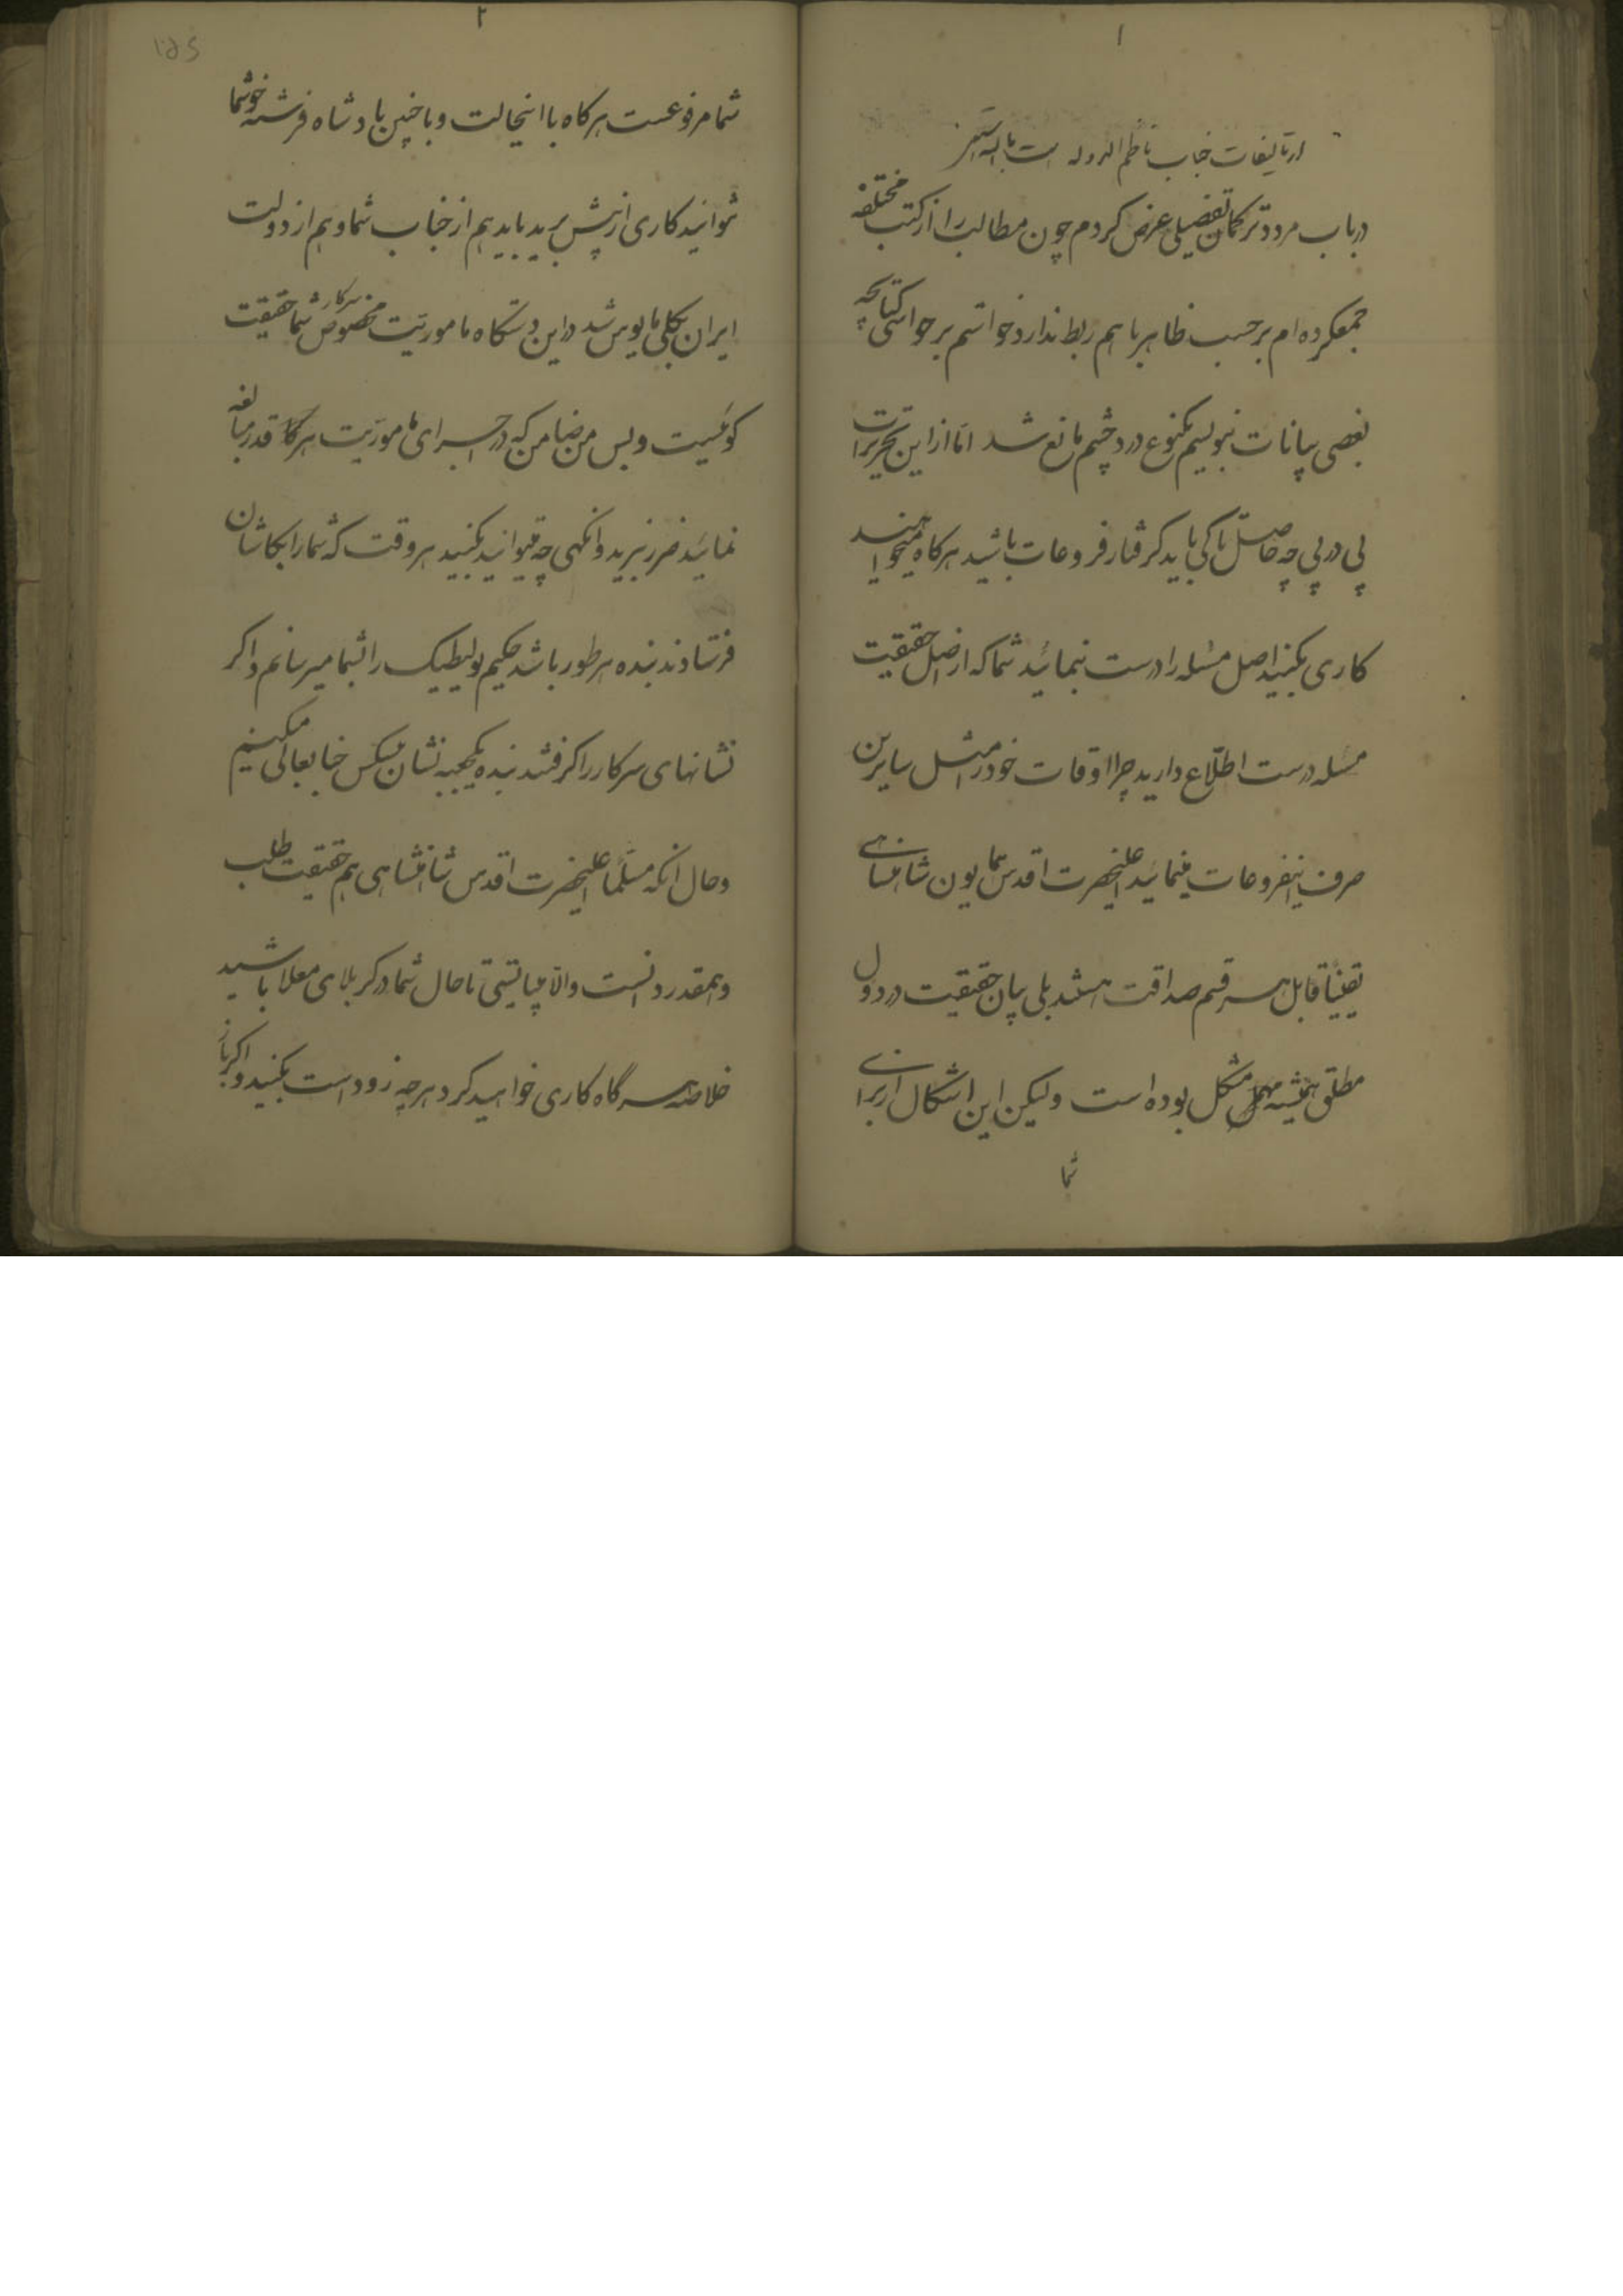 ۱
از تالیفات جناب ناظم الدوله است
در باب مرو و ترکمان تفصیلی عرض کردم چون مطالب را از کتب مختلفه
جمعکرده‌ام بر حسب ظاهر با هم ربط ندارد خواستم بر حواشی کتابچه
بعضی بیانات بنویسیم یکنوع درد چشم مانع شد اما از این تحریرات
پی در پی چه حاصل تا کی باید گرفتار فروعات باشید هرکاه میخواهید
کاری بکنید اصل مسئله را درست بنمائید شما که از اصل حقیقت
مسئله درست اطلاع دارید چرا اوقات خود را مثل سایرین
صرف اینفروعات مینمائید اعلیحضرت اقدس همایون شاهنشاهی
یقیناً قابل هر قسم صداقت هستند بلی بیان حقیقت در دول
مطلق همیشه مشکل بوده است ولیکن این اشکال از برای
شما
۲
شما مرفوعست هرکاه با اینحالت و با چنین پادشاه فرشته خو شما
نتوانید کاری از پیش ببرید باید هم از جناب شما و هم از دولت
ایران بکلی مایوس شد در این دستکاه ماموریت مخصوص سرکار شما حقیقت
کوئیست و بس من ضامن که در اجرای ماموریت هرکاه قدر مبالغه
نمائید ضرر نبرید وانکهی چه میتوانید بکنید هر وقت که شما را بکاشان
فرستادند بنده هر طور باشد حکیم پولیطیک را بشما میرسانم و اکر
نشانهای سرکار را کرفتند بنده یکجعبه نشان پیشکش جنابعالی میکنم
و حال آنکه مسلماً اعلیحضرت اقدس شاهنشاهی هم حقیقت طلب
و هم قدردانست والا میبایستی تا حال شما در کربلای معلا باشید
خلاصه هر گاه کاری خواهید کرد هر چه زود است بکنید و اکر باز